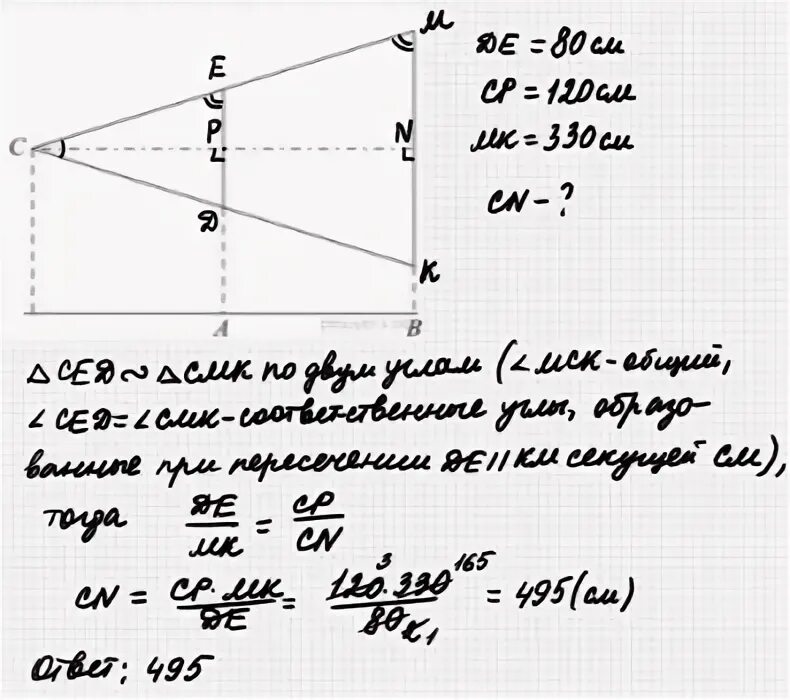 M
E
P
N
C
D
K
A
B
DE = 80 см
CP = 120 см
MK = 330 см
CN - ?
△CED ~ △CMK по двум углам (∠MCK - общий,
∠CED = ∠CMK - соответственные углы, образо-
ванные при пересечении DE || KM секущей CM),
тогда DE/MK = CP/CN
CN = CP·MK/DE = 120³·330¹⁶⁵/80 = 495 (см)
Ответ: 495